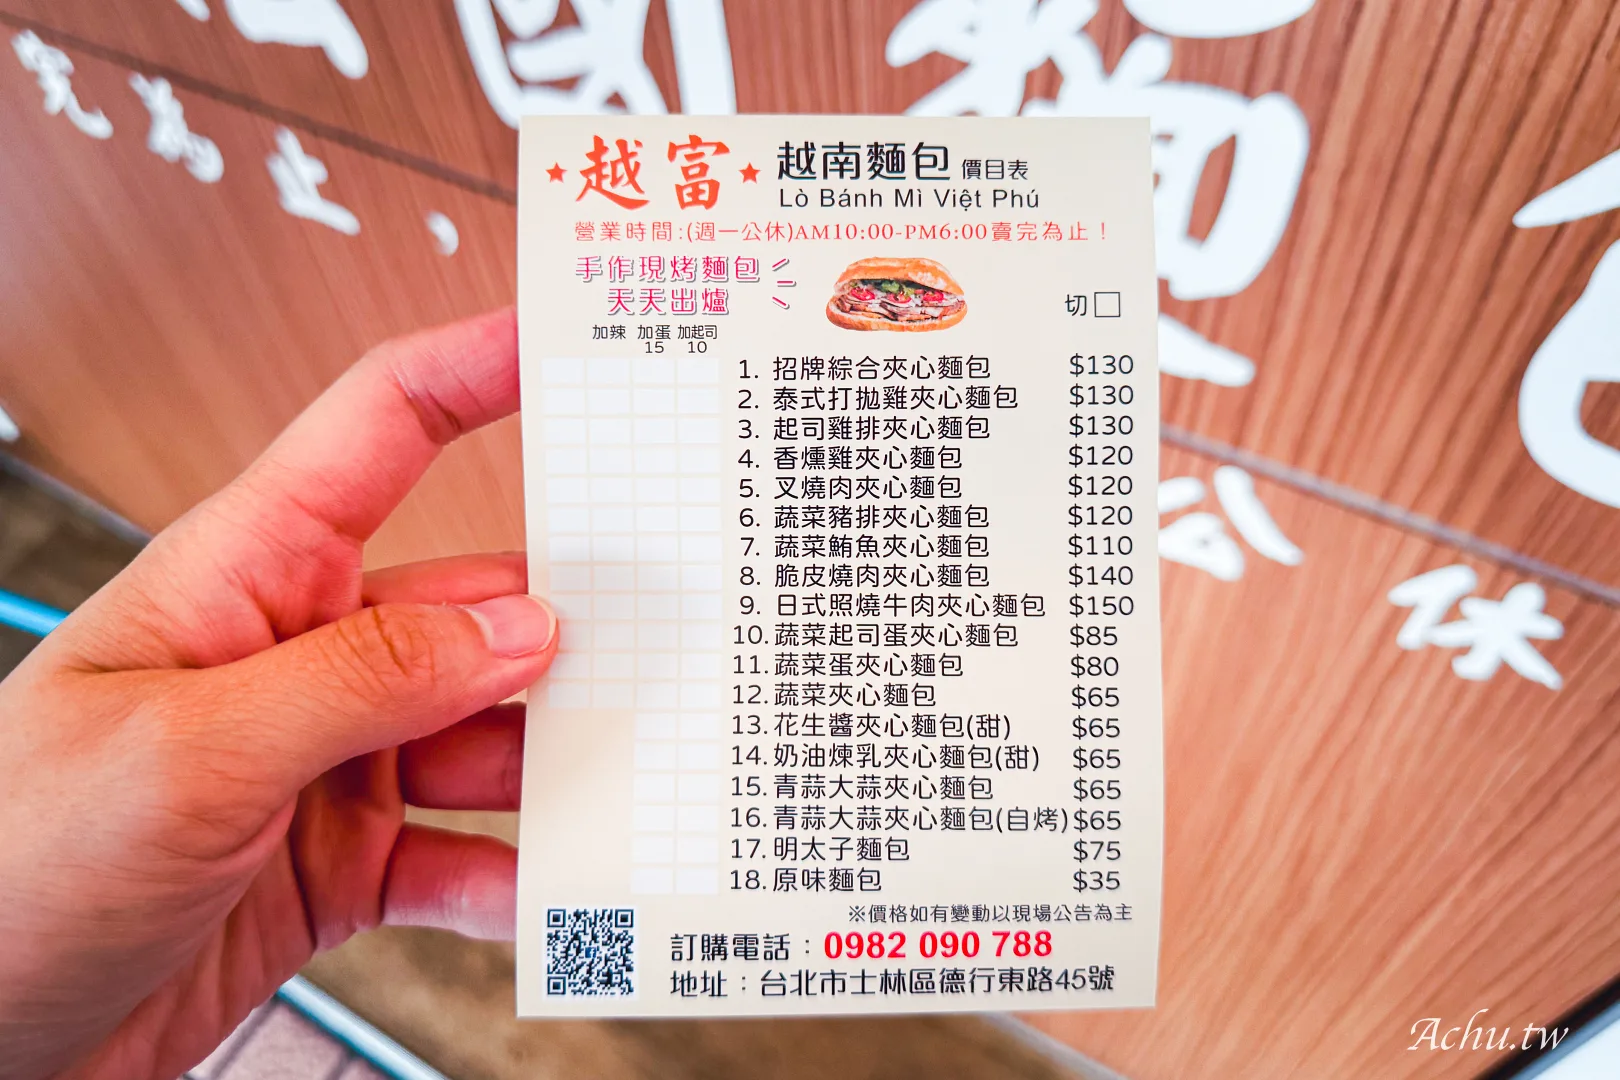 國
包
究為止，
公休
越富 越南麵包 價目表
Lò Bánh Mì Việt Phú
營業時間:(週一公休)AM10:00-PM6:00賣完為止！
手作現烤麵包
天天出爐
切□
加辣 加蛋 加起司
15 10
1. 招牌綜合夾心麵包 $130
2. 泰式打拋雞夾心麵包 $130
3. 起司雞排夾心麵包 $130
4. 香燻雞夾心麵包 $120
5. 叉燒肉夾心麵包 $120
6. 蔬菜豬排夾心麵包 $120
7. 蔬菜鮪魚夾心麵包 $110
8. 脆皮燒肉夾心麵包 $140
9. 日式照燒牛肉夾心麵包 $150
10. 蔬菜起司蛋夾心麵包 $85
11. 蔬菜蛋夾心麵包 $80
12. 蔬菜夾心麵包 $65
13. 花生醬夾心麵包(甜) $65
14. 奶油煉乳夾心麵包(甜) $65
15. 青蒜大蒜夾心麵包 $65
16. 青蒜大蒜夾心麵包(自烤) $65
17. 明太子麵包 $75
18. 原味麵包 $35
※價格如有變動以現場公告為主
訂購電話：0982 090 788
地址：台北市士林區德行東路45號
Achu.tw